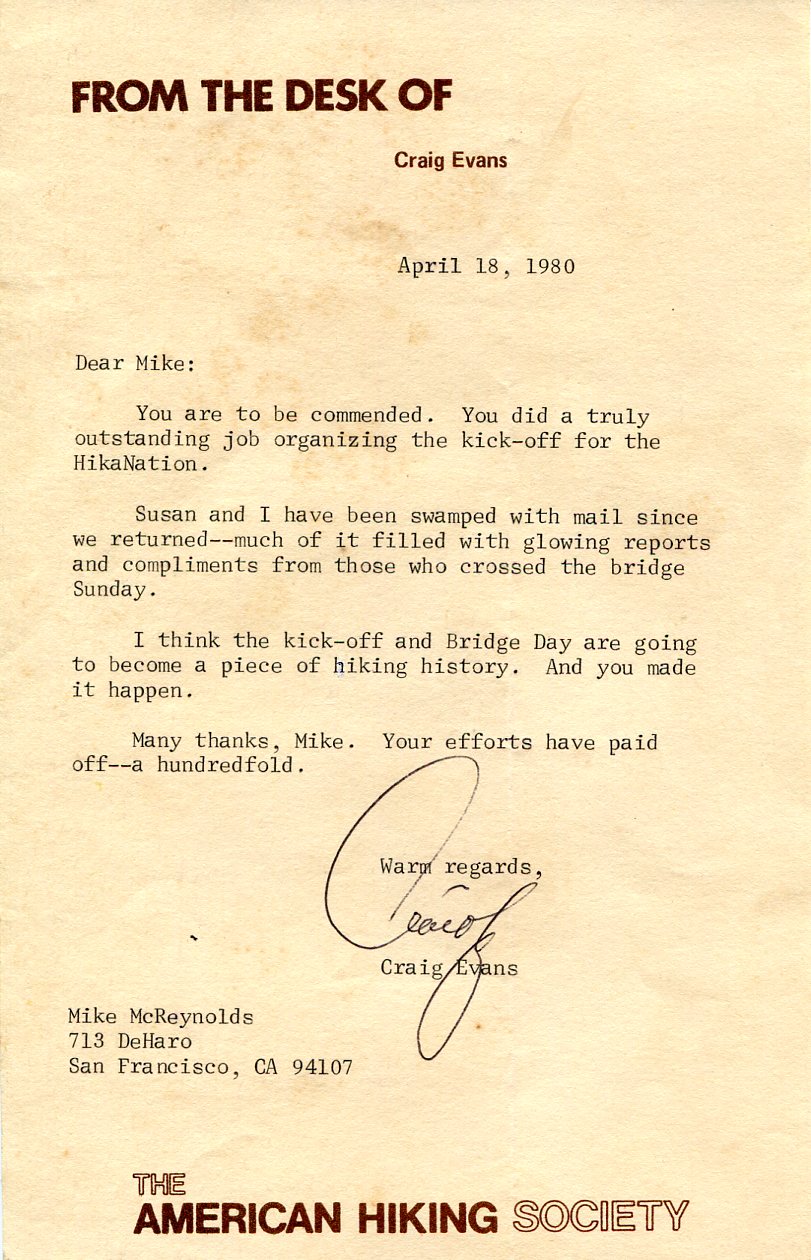 FROM THE DESK OF
Craig Evans
April 18, 1980
Dear Mike:
You are to be commended. You did a truly
outstanding job organizing the kick-off for the
HikaNation.
Susan and I have been swamped with mail since
we returned--much of it filled with glowing reports
and compliments from those who crossed the bridge
Sunday.
I think the kick-off and Bridge Day are going
to become a piece of hiking history. And you made
it happen.
Many thanks, Mike. Your efforts have paid
off--a hundredfold.
Warm regards,
Craig
Craig Evans
Mike McReynolds
713 DeHaro
San Francisco, CA 94107
THE
AMERICAN HIKING SOCIETY